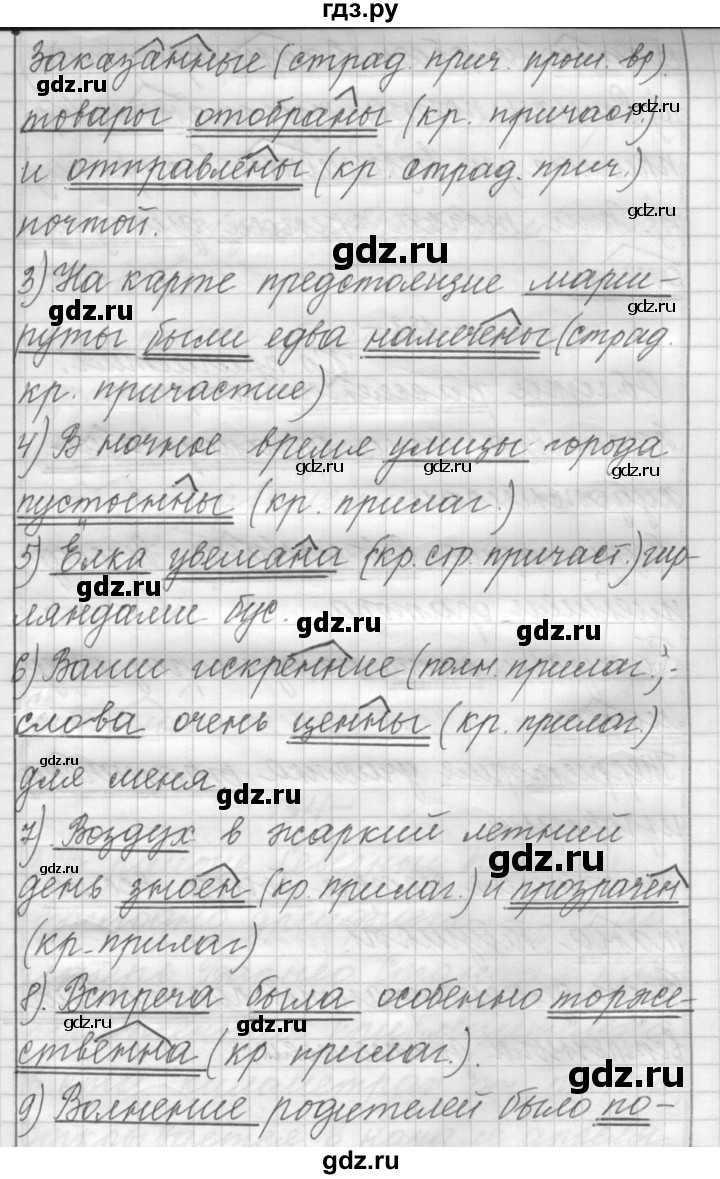 гдз.ру
Заказанные (страд. прич. прош. вр).
товары отобраны (кр. причаст.)
и отправлены (кр. страд. прич.)
почтой.
3) На карте предстоящие марш-
руты были едва намечены (страд.
кр. причастие)
4) В ночное время улицы города
пустынны (кр. прилаг.)
5) Ёлка увешана (кр. стр. причаст.) гир-
ляндами бус.
6) Ваши искренние (полн. прилаг.)
слова очень ценны (кр. прилаг.)
для меня
7) Воздух в жаркий летний
день зноен (кр. прилаг.) и прозрачен
(кр. прилаг)
8). Встреча была особенно торже-
ственна (кр. прилаг.).
9) Волнение родителей было по-
gdz.ru